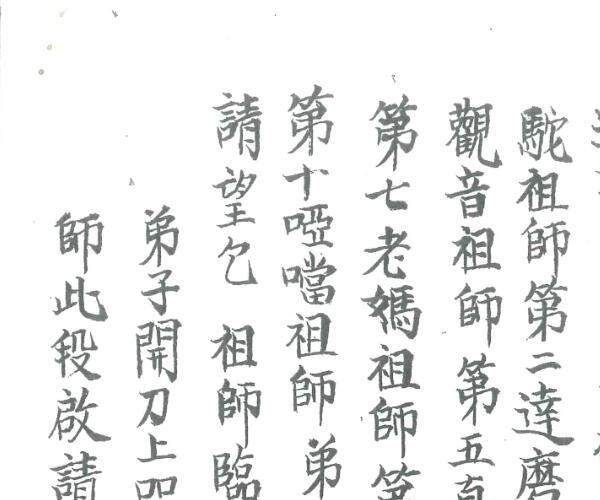 駝祖師第二達磨
觀音祖師第五
第七老媽祖師第
第十啞噹祖師弟
請望乞 祖師臨
弟子開刀上
師此段啟請